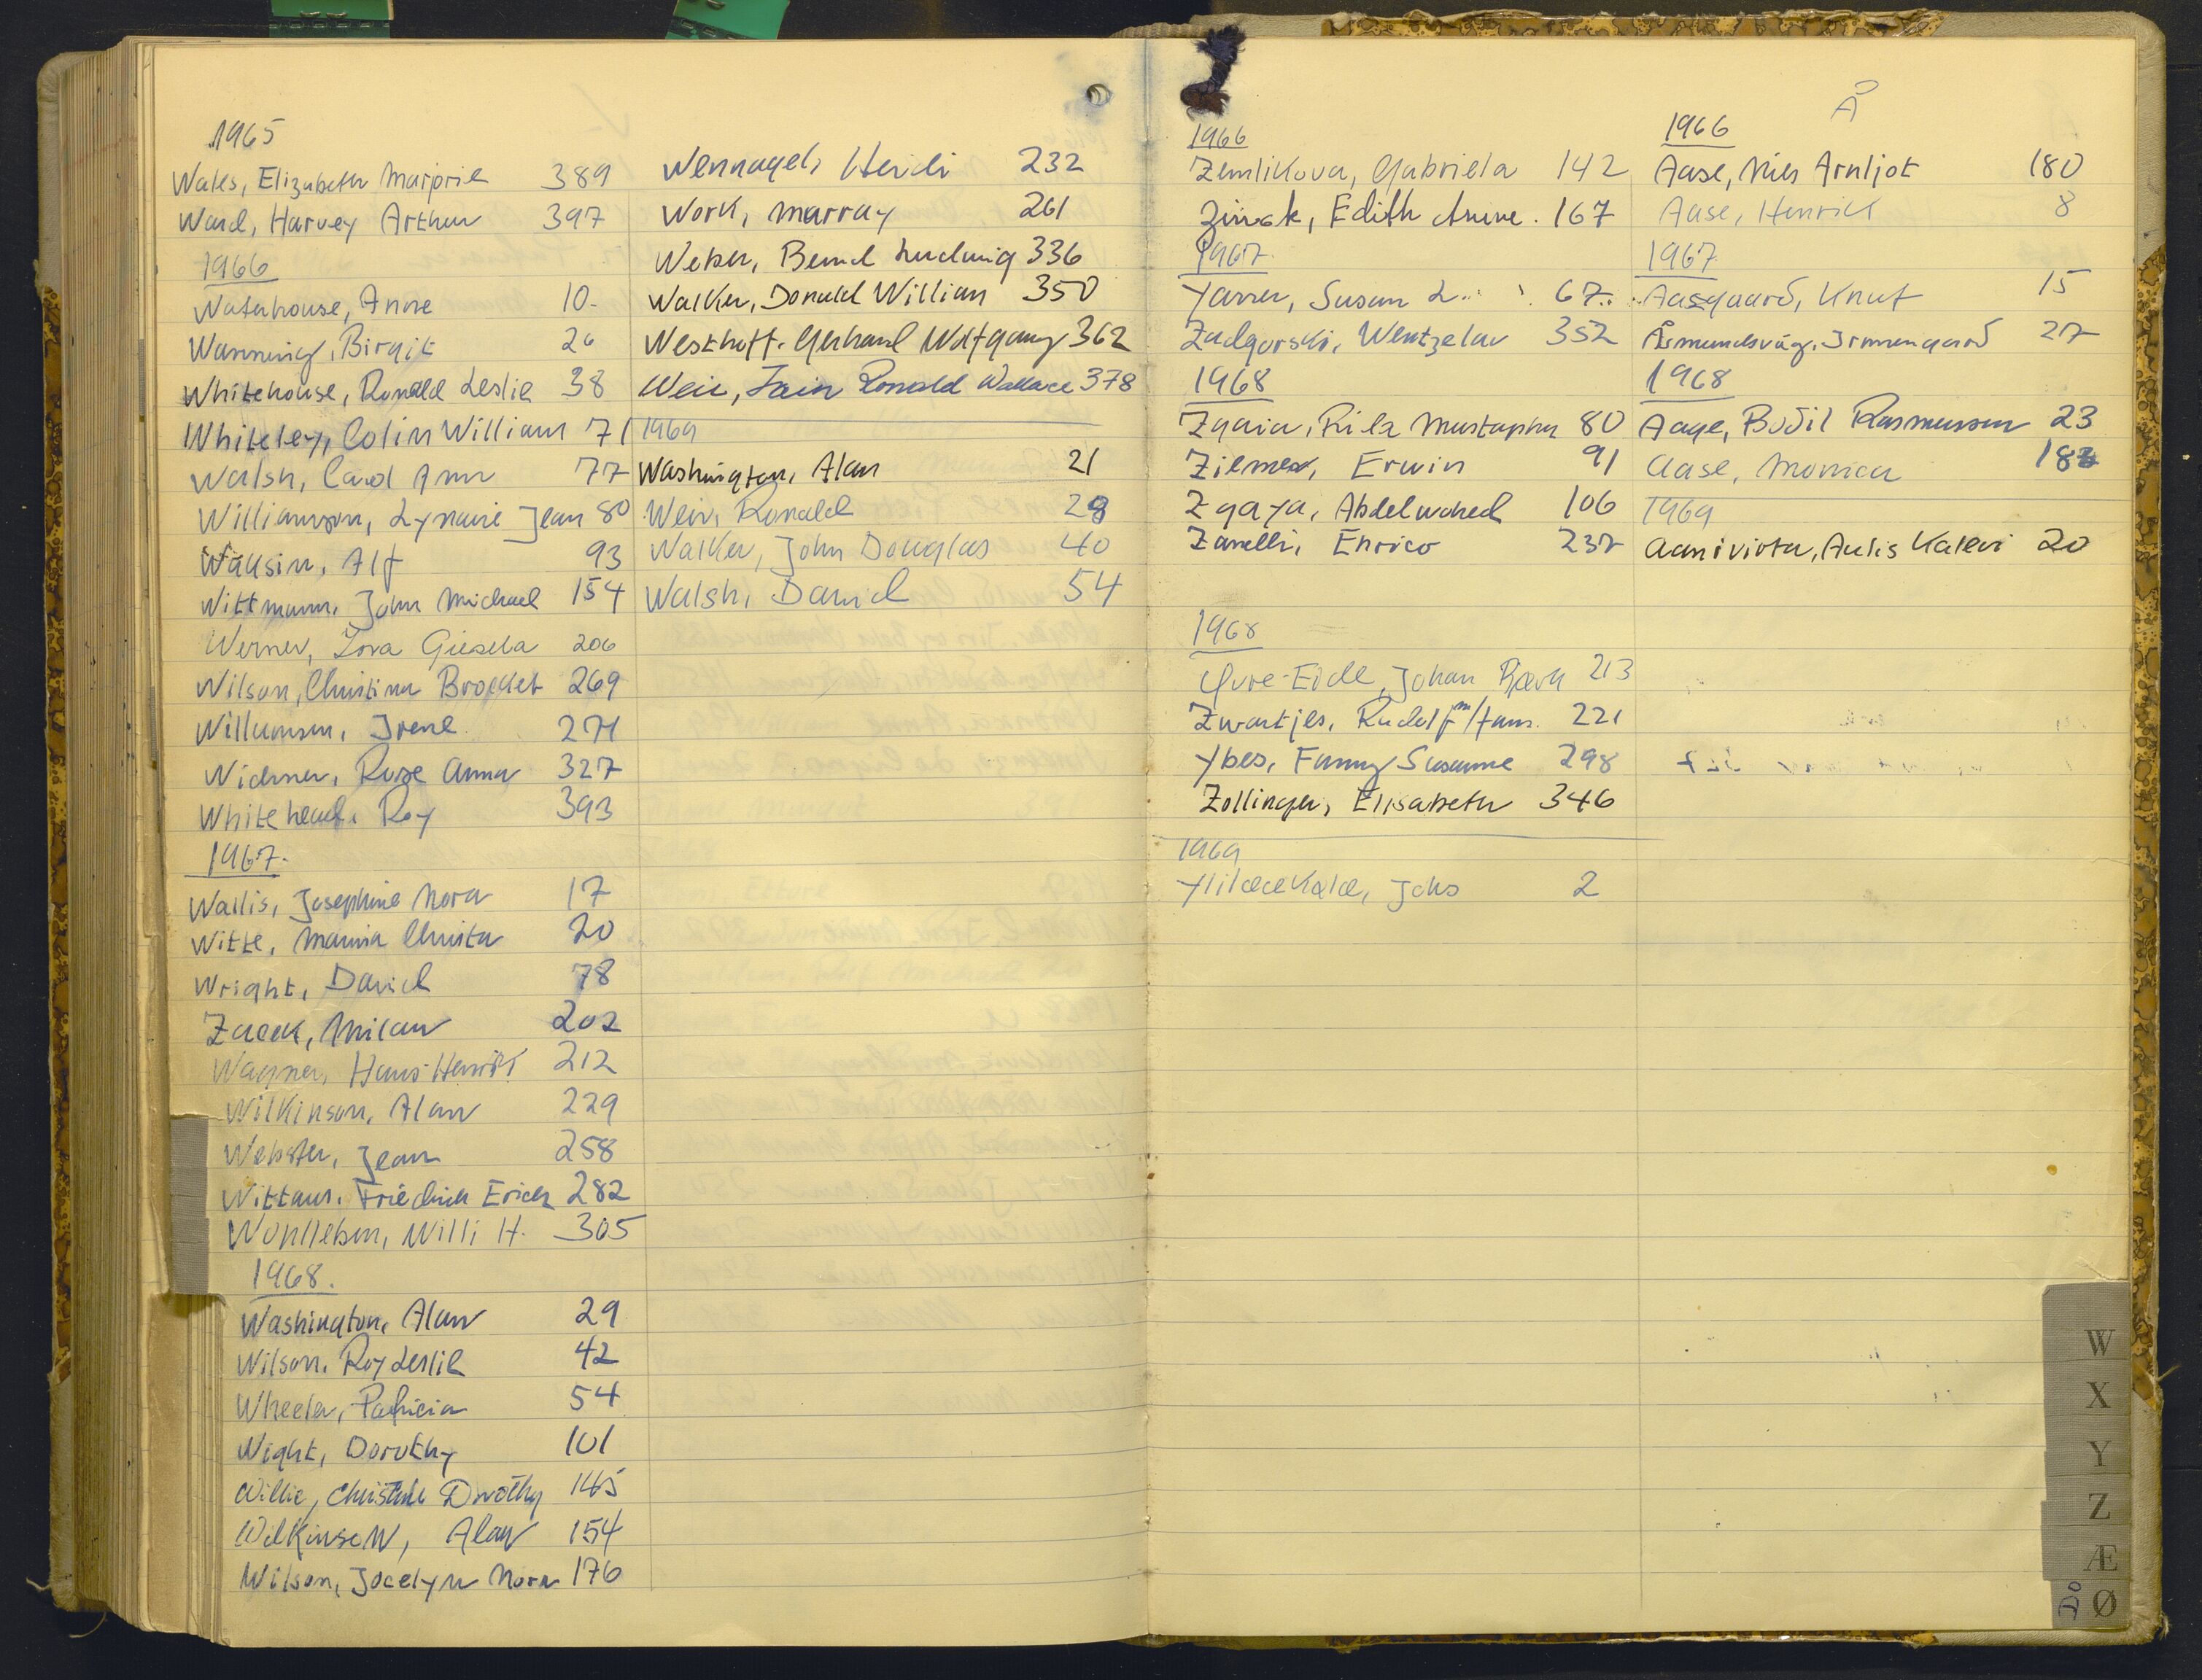 1965
Wales, Elizabeth Marjorie 389
Ward, Harvey Arthur 397
1966
Waterhouse, Anne 10-
Wanning, Birgit 26
Whitehouse, Ronald Leslie 38
Whiteley, Colin William 71
Walsh, Carol Ann 77
Williamson, Lynaire Jean 80
Wäksin, Alf 93
Wittmann, John Michael 154
Werner, Lova Giesela 206
Wilson, Christina Brocket 269
Willumsen, Irene 271
Widmer, Rose Anna 327
Whitehead, Roy 393
1967.
Wallis, Josephine Nora 17
Witte, Christa 20
Wright, David 78
Zacek, Milan 202
Wagner, Hans-Henrik 212
Wilkinson, Alan 229
Webster, Jean 258
Wittaus, Friedrich Erich 282
Wohlleben, Willi H. 305
1968.
Washington, Alan 29
Wilson, Roy Leslie 42
Wheeler, Patricia 54
Wight, Dorothy 101
Willie, Christine Dorothy 145
Wilkinson, Alan 154
Wilson, Jocelyn Nora 176
Wennagel, Heidi 232
Work, Murray 261
Weber, Bernd Ludwig 336
Walker, Donald William 350
Westhoff, Gerhard Wolfgang 362
Weir, Iain Ronald Wallace 378
1969
Washington, Alan 21
Weir, Ronald 28
Walker, John Douglas 40
Walsh, David 54
1966
Zemlikova, Gabriela 142
Edith Anine. 167
1967.
Yarrer, Susan L. 67.
Zadgorski, Wentzelav 352
1968
Zgaia, Rila Mustapha 80
Ziemer, Erwin 91
Zgaya, Abdelwahed 106
Zanelli, Enrico 232
1968
Øvre-Eide, Johan 213
Zwartjes, Rudolf 221
Ybes, Fanny Susanne 298
Zollinger, Elisabeth 346
1969
Johs 2
Å
1966
Aase, Nils Arnljot 180
Aase, Henrick 8
1967.
Aasgaard, Knut 15
Åsmundsvåg, Irmengard 27
1968
Aage, Bodil Rasmussen 23
Aase, Monica 183
1969
Aanivirta, Aulis Kalevi 20
W
X
Y
Z
Æ
Ø
Do